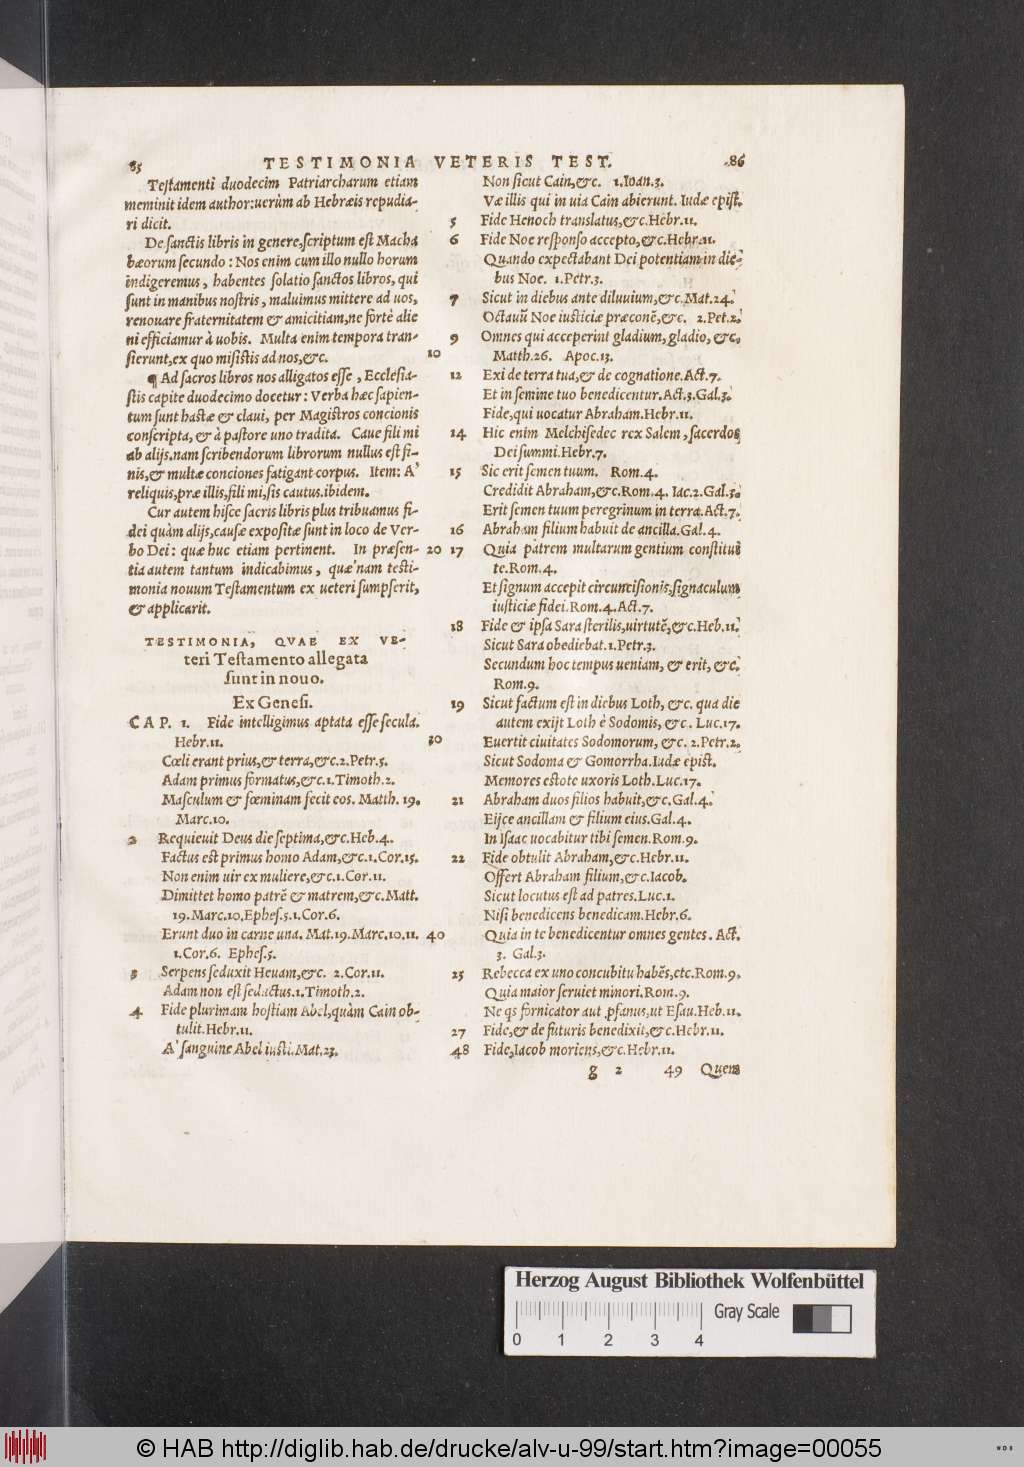 85 TESTIMONIA VETERIS TEST. 86
Testamenti duodecim Patriarcharum etiam
meminit idem author: uerùm ab Hebræis repudia-
ri dicit.
De sanctis libris in genere, scriptum est Macha
bæorum secundo: Nos enim cum illo nullo horum
indigeremus, habentes solatio sanctos libros, qui
sunt in manibus nostris, maluimus mittere ad uos,
renouare fraternitatem & amicitiam, ne fortè alie
ni efficiamur à uobis. Multa enim tempora tran-
sierunt, ex quo misistis ad nos, &c. 10
¶ Ad sacros libros nos alligatos esse, Ecclesia-
stis capite duodecimo docetur: Verba hæc sapien-
tum sunt hastæ & claui, per Magistros concionis
conscripta, & à pastore uno tradita. Caue fili mi
ab alijs. nam scribendorum librorum nullus est fi-
nis, & multæ conciones fatigant corpus. Item: A'
reliquis, præ illis, fili mi, sis cautus. ibidem.
Cur autem hisce sacris libris plus tribuamus fi-
dei quàm alijs, causæ expositæ sunt in loco de Ver-
bo Dei: quæ huc etiam pertinent. In præsen- 20
tia autem tantum indicabimus, quæ'nam testi-
monia nouum Testamentum ex ueteri sumpserit,
& applicarit.
TESTIMONIA, QVAE EX VE-
teri Testamento allegata
sunt in nouo.
Ex Genesi.
CAP. 1. Fide intelligimus aptata esse secula.
Hebr.11. 30
Cœli erant prius, & terra, &c. 2. Petr. 5.
Adam primus formatus, &c. 1. Timoth. 2.
Masculum & fœminam fecit eos. Matth. 19.
Marc. 10.
2 Requieuit Deus die septima, &c. Heb. 4.
Factus est primus homo Adam, &c. 1. Cor. 15.
Non enim uir ex muliere, &c. 1. Cor. 11.
Dimittet homo patrẽ & matrem, &c. Matt.
19. Marc. 10. Ephes. 5. 1. Cor. 6.
Erunt duo in carne una. Mat. 19. Marc. 10. 11. 40
1. Cor. 6. Ephes. 5.
3 Serpens seduxit Heuam, &c. 2. Cor. 11.
Adam non est seductus. 1. Timoth. 2.
4 Fide plurimam hostiam Abel, quàm Cain ob-
tulit. Hebr. 11.
A' sanguine Abel iusti. Mat. 23.
Non sicut Cain, &c. 1. Ioan. 3.
Væ illis qui in uia Cain abierunt. Iudæ epist.
5 Fide Henoch translatus, &c. Hebr. 11.
6 Fide Noe responso accepto, &c. Hebr. 11.
Quando expectabant Dei potentiam in die-
bus Noe. 1. Petr. 3.
7 Sicut in diebus ante diluuium, &c. Mat. 24.
Octauũ Noe iusticiæ præconẽ, &c. 2. Pet. 2.
9 Omnes qui acceperint gladium, gladio, &c.
Matth. 26. Apoc. 13.
12 Exi de terra tua, & de cognatione. Act. 7.
Et in semine tuo benedicentur. Act. 3. Gal. 3.
Fide, qui uocatur Abraham. Hebr. 11.
14 Hic enim Melchisedec rex Salem, sacerdos
Dei summi. Hebr. 7.
15 Sic erit semen tuum. Rom. 4.
Credidit Abraham, &c. Rom. 4. Iac. 2. Gal. 3.
Erit semen tuum peregrinum in terra. Act. 7.
16 Abraham filium habuit de ancilla. Gal. 4.
17 Quia patrem multarum gentium constitui
te. Rom. 4.
Et signum accepit circuncisionis, signaculum
iusticiæ fidei. Rom. 4. Act. 7.
18 Fide & ipsa Sara sterilis, uirtutẽ, &c. Heb. 11.
Sicut Sara obediebat. 1. Petr. 3.
Secundum hoc tempus ueniam, & erit, &c.
Rom. 9.
19 Sicut factum est in diebus Loth, &c. qua die
autem exijt Loth è Sodomis, &c. Luc. 17.
Euertit ciuitates Sodomorum, &c. 2. Petr. 2.
Sicut Sodoma & Gomorrha. Iudæ epist.
Memores estote uxoris Loth. Luc. 17.
21 Abraham duos filios habuit, &c. Gal. 4.
Eijce ancillam & filium eius. Gal. 4.
In Isaac uocabitur tibi semen. Rom. 9.
22 Fide obtulit Abraham, &c. Hebr. 11.
Offert Abraham filium, &c. Iacob.
Sicut locutus est ad patres. Luc. 1.
Nisi benedicens benedicam. Hebr. 6.
Quia in te benedicentur omnes gentes. Act.
3. Gal. 3.
25 Rebecca ex uno concubitu habẽs, etc. Rom. 9.
Quia maior seruiet minori. Rom. 9.
Ne qs fornicator aut ꝓfanus, ut Esau. Heb. 11.
27 Fide, & de futuris benedixit, &c. Hebr. 11.
48 Fide, Iacob moriens, &c. Hebr. 11.
g 2 49 Quem
Herzog August Bibliothek Wolfenbüttel
Gray Scale
0 1 2 3 4
© HAB http://diglib.hab.de/drucke/alv-u-99/start.htm?image=00055